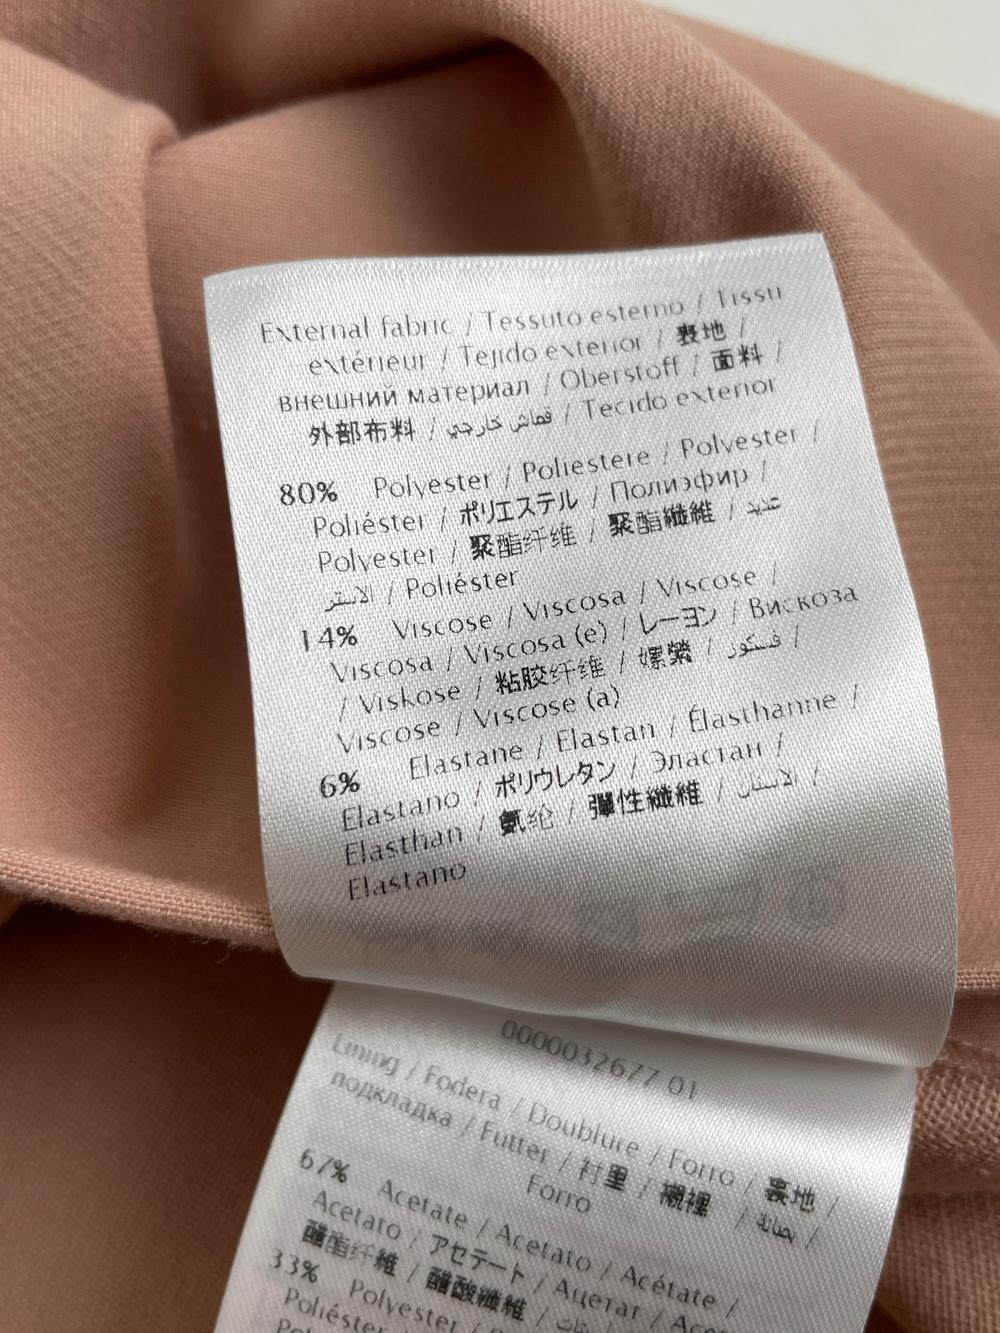 External fabric / Tessuto esterno / Tissu
extérieur / Tejido exterior / 表地 /
внешний материал / Oberstoff / 面料 /
外部布料 / قماش خارجي / Tecido exterior
80% Polyester / Poliestere / Polyester /
Poliéster / ポリエステル / Полиэфир /
Polyester / 聚酯纤维 / 聚酯纖維 /
/ Poliéster
14% Viscose / Viscosa / Viscose /
Viscosa / Viscosa (e) / レーヨン / Вискоза
/ Viskose / 粘胶纤维 / 嫘縈 / فسكوز /
Viscose / Viscose (a)
6% Elastane / Elastan / Élasthanne /
Elastano / ポリウレタン / Эластан /
Elasthan / 氨纶 / 彈性纖維 / /
Elastano
0000032677 01
Lining / Fodera / Doublure / Forro / 裏地 /
подкладка / Futter / 衬里 / 襯裡 / بطانة /
Forro
67% Acetate / Acetato / Acétate /
Acetato / アセテート / Ацетат /
醋酯纤維 / 醋酸纖維 /
33% Polyester
Poliéster